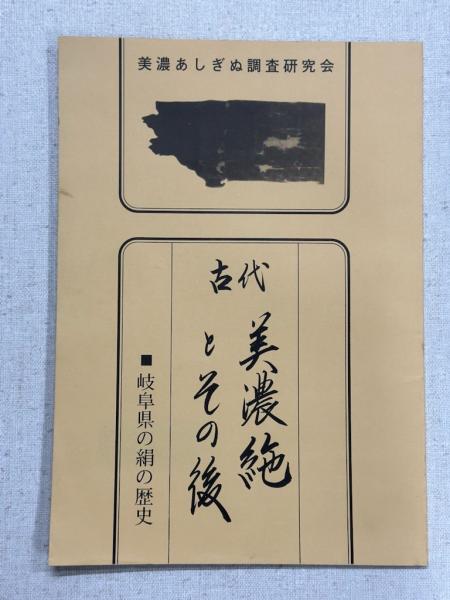 美濃あしぎぬ調査研究会
古代
美濃絁
とその後
■岐阜県の絹の歴史